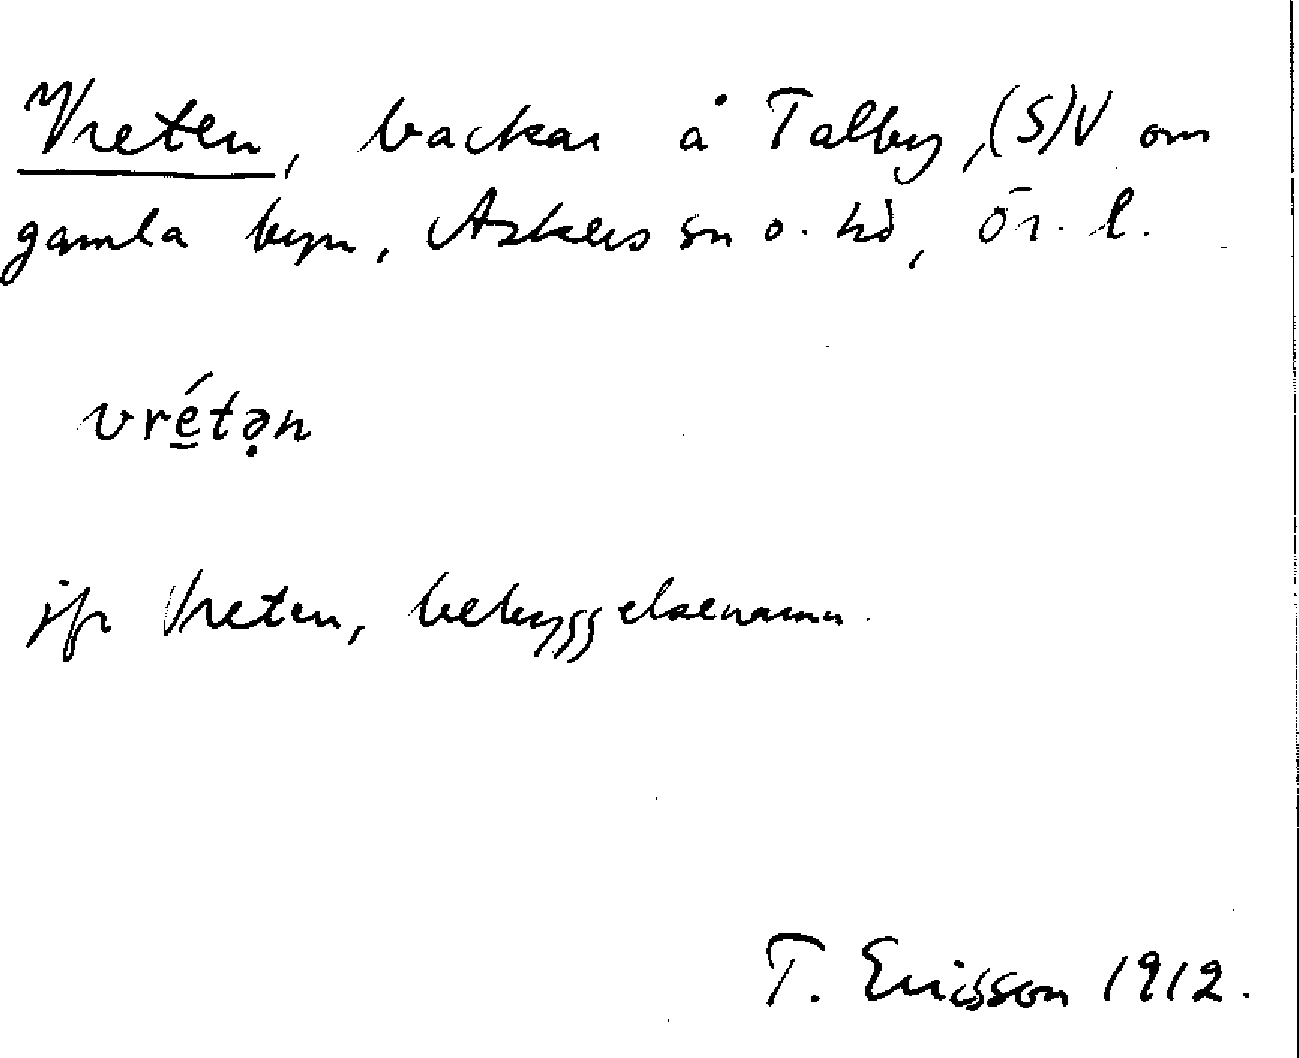 Vreten, backar å Talby, (S)V om
gamla byn, Askers sn o. hd, Ör. l.
vré̲tə̣n
jfr Vreten, bebyggelsenamn.
T. Ericsson 1912.